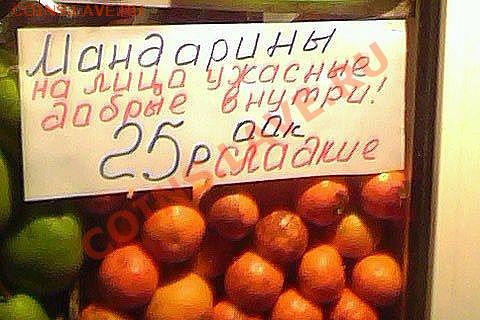 COINSLAVE.RU
Мандарины
на лицо ужасные
добрые внутри!
25р сладкие
COINSLAVE.RU